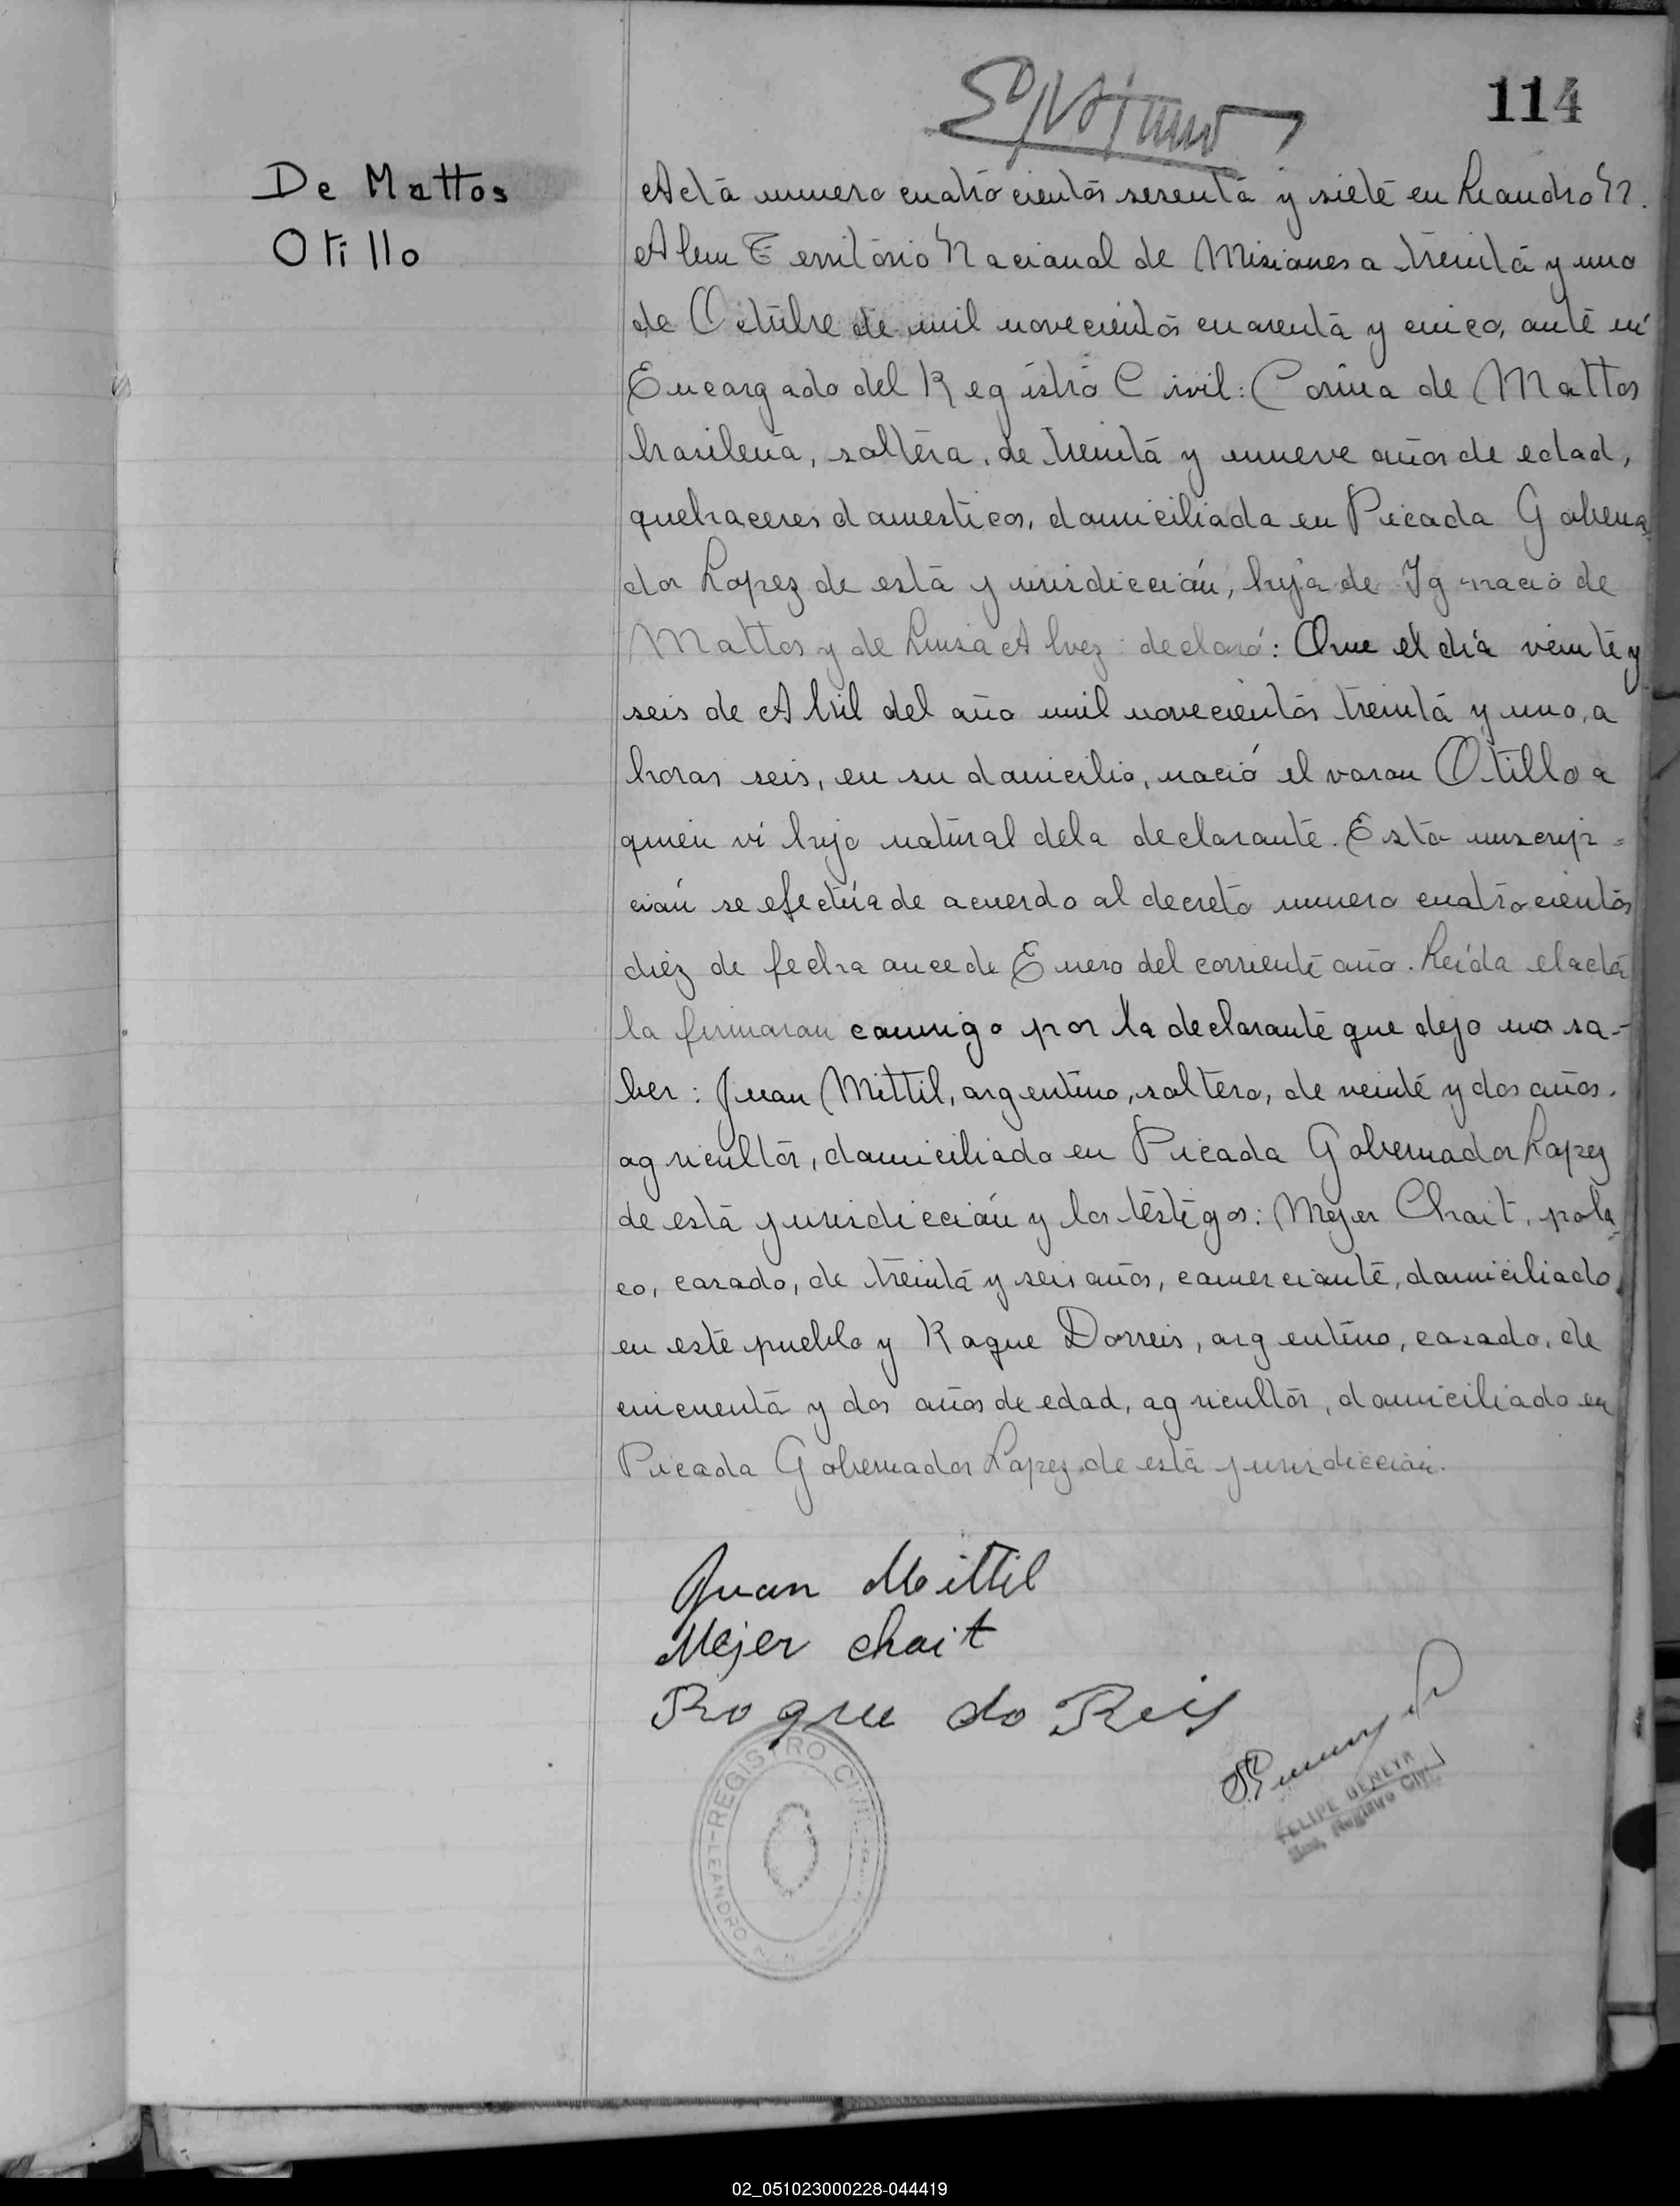 114
De Mattos
Otillo
Acta numero cuatrocientos sesenta y siete en Leandro N.
Alem Territorio Nacional de Misiones a treinta y uno
de Octubre de mil novecientos cuarenta y cinco, ante mí
Encargado del Registro Civil: Corina de Mattos
brasileña, soltera, de treinta y nueve años de edad,
quehaceres domesticos, domiciliada en Picada Goberna
dor Lopez de esta jurisdicción, hija de Ignacio de
Mattos y de Luisa Alvez: declaró: Que el día veinte y
seis de Abril del año mil novecientos treinta y uno, a
horas seis, en su domicilio, nació el varon Otillo a
quien vi hijo natural dela declarante. Esta inscrip-
ción se efectúa de acuerdo al decreto numero cuatrocientos
diez de fecha once de Enero del corriente año. Leída el acta
la firmaron conmigo por la declarante que dejo no sa-
ber: Juan Mittil, argentino, soltero, de veinte y dos años.
agricultor, domiciliado en Picada Gobernador Lopez
de esta jurisdicción y los testigos: Mejer Chait, pola
co, casado, de treinta y seis años, comerciante, domiciliado
en este pueblo y Roque Dorreis, argentino, casado, de
cincuenta y dos años de edad, agricultor, domiciliado en
Picada Gobernador Lopez de esta jurisdicción.
Juan Mittil
Mejer chait
Roque do Reis
REGISTRO CIVIL
LEANDRO N.
FELIPE
Registro Civil
02_051023000228-044419